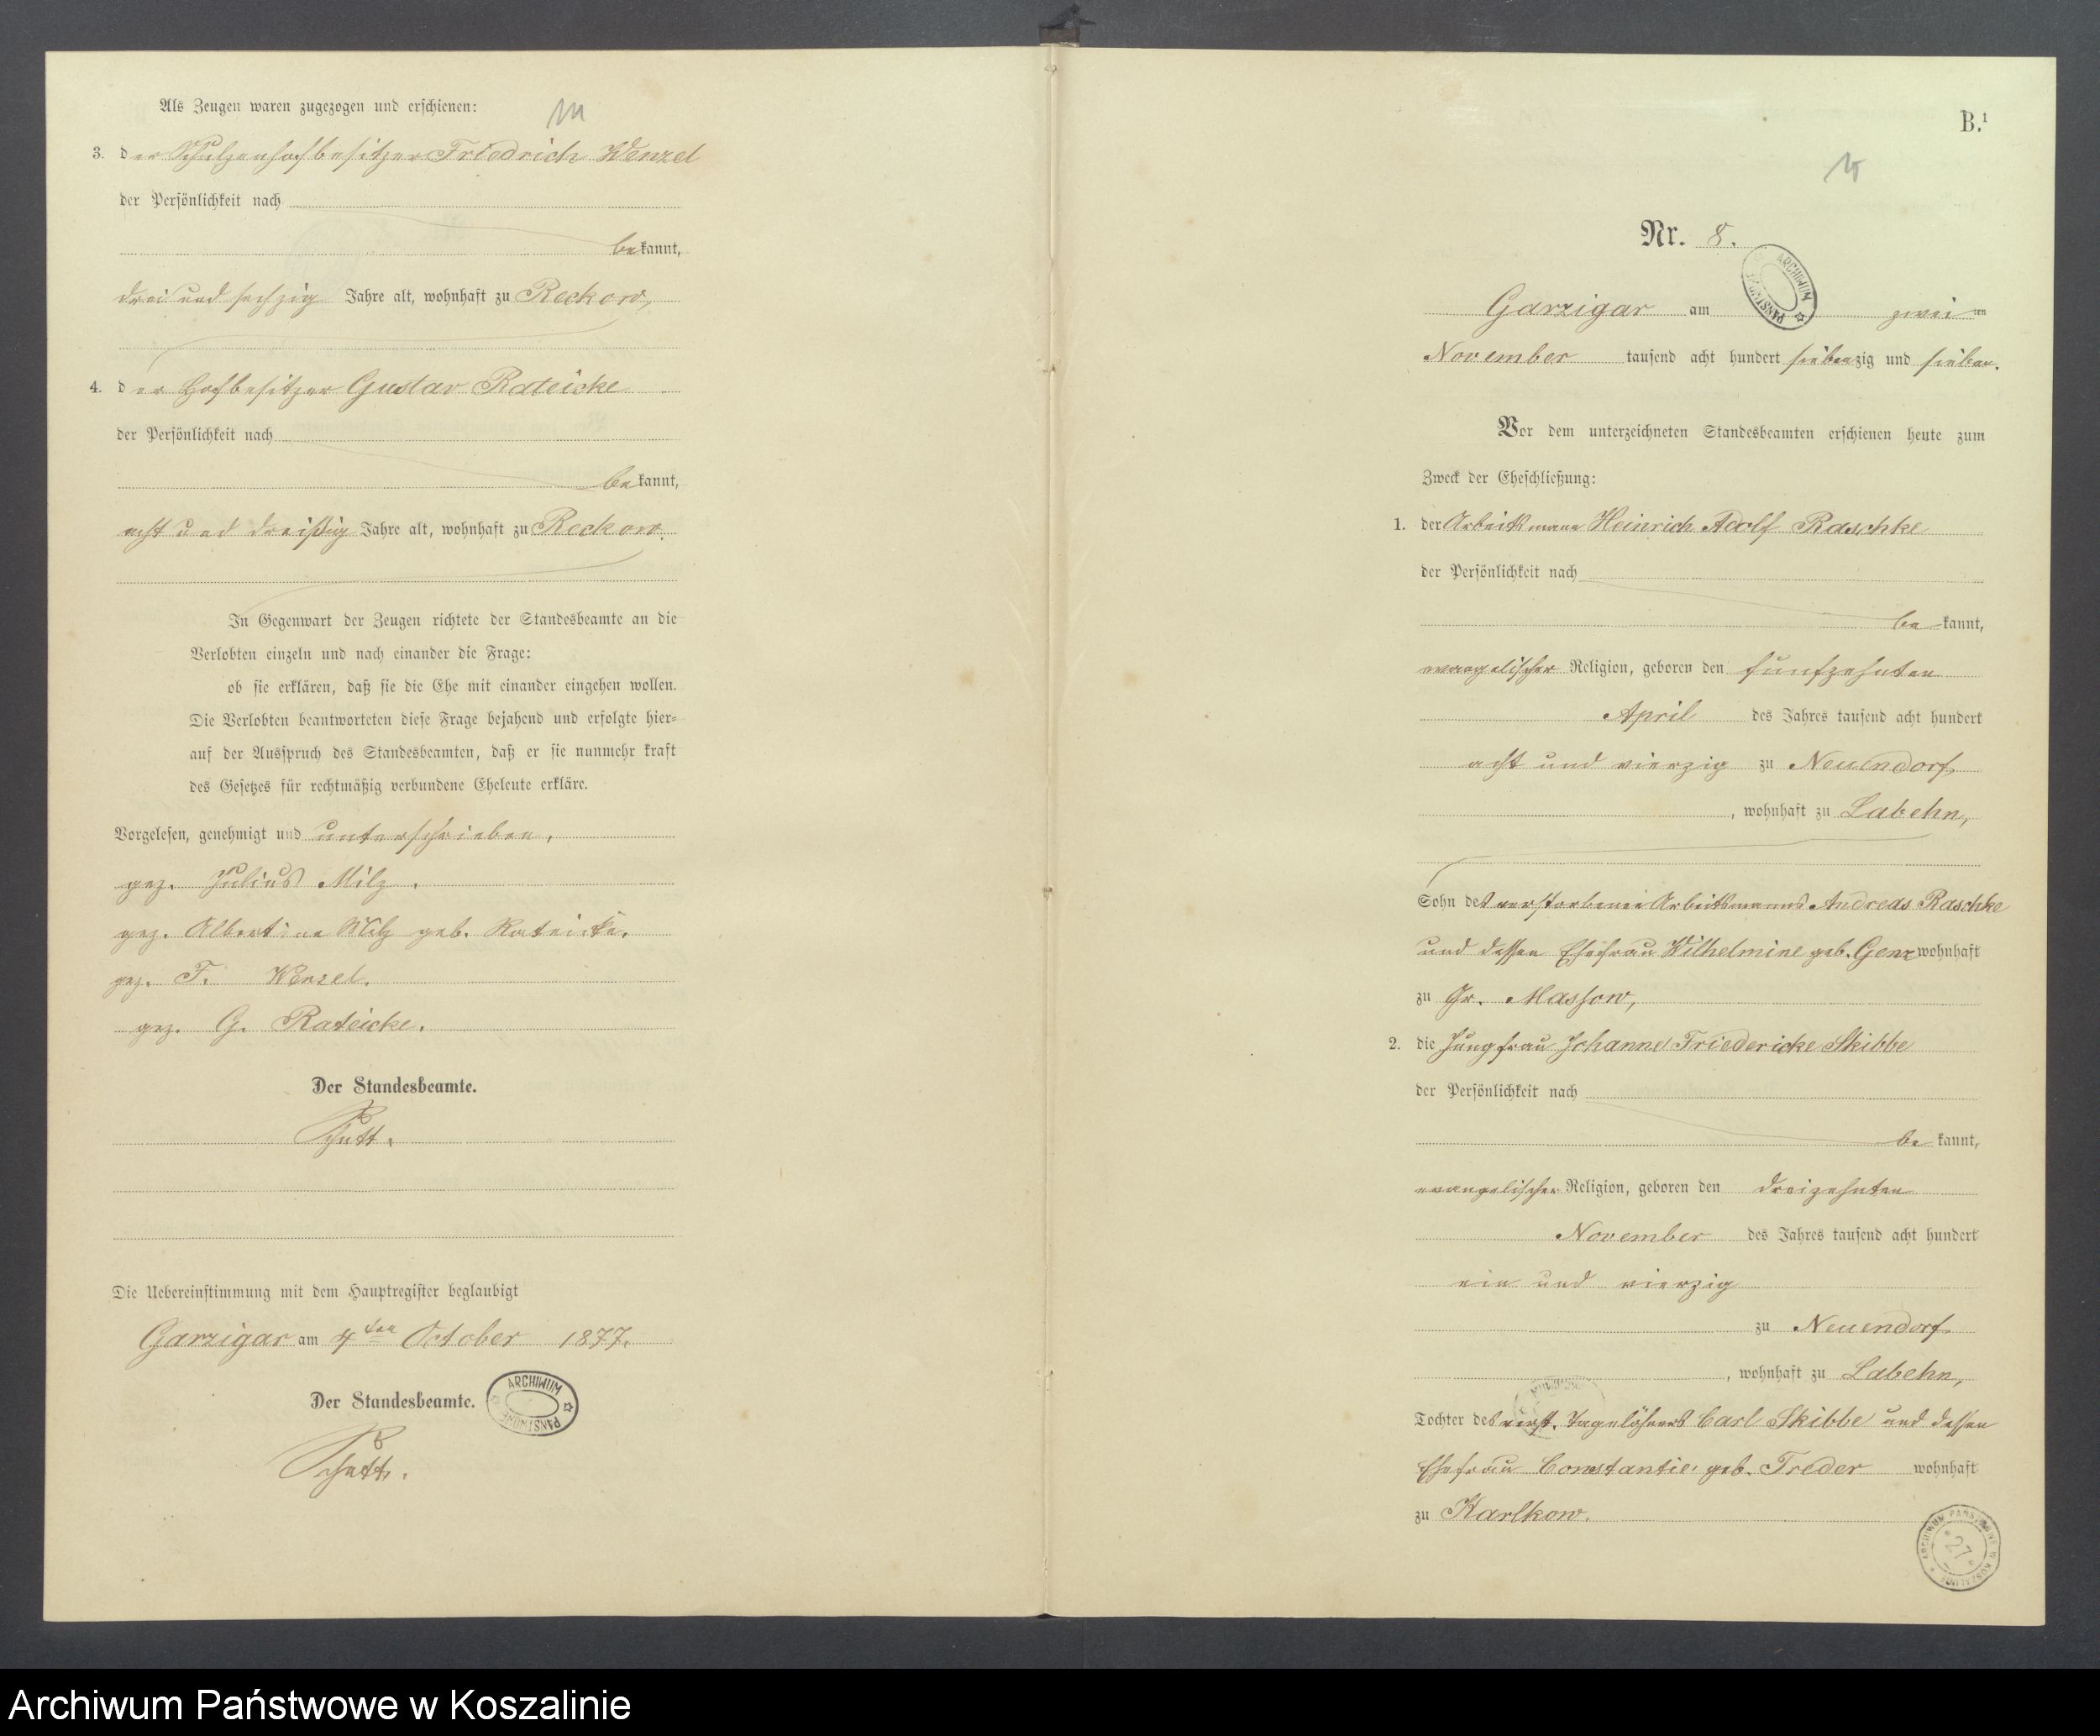 Als Zeugen waren zugezogen und erschienen:
3. der Schulzenhofbesitzer Friedrich Wenzel
der Persönlichkeit nach
bekannt,
drei und sechzig Jahre alt, wohnhaft zu Reckow,
4. der Hofbesitzer Gustav Rateicke
der Persönlichkeit nach
bekannt,
acht und dreißig Jahre alt, wohnhaft zu Reckow.
In Gegenwart der Zeugen richtete der Standesbeamte an die
Verlobten einzeln und nach einander die Frage:
ob sie erklären, daß sie die Ehe mit einander eingehen wollen.
Die Verlobten beantworteten diese Frage bejahend und erfolgte hier-
auf der Ausspruch des Standesbeamten, daß er sie nunmehr kraft
des Gesetzes für rechtmäßig verbundene Eheleute erkläre.
Vorgelesen, genehmigt und unterschrieben,
gez. Julius Milz.
gez. Albertine Milz geb. Rateicke.
gez. F. Wenzel.
gez. G. Rateicke.
Der Standesbeamte.
Schutt.
Die Uebereinstimmung mit dem Hauptregister beglaubigt
Garzigar am 4ten October 1877.
Der Standesbeamte.
ARCHIWUM PAŃSTWOWE
Schutt.
B.1
Nr. 8.
ARCHIWUM PAŃSTWOWE
Garzigar am zweiten
November tausend acht hundert siebenzig und sieben.
Vor dem unterzeichneten Standesbeamten erschienen heute zum
Zweck der Eheschließung:
1. der Arbeitsmann Heinrich Adolf Raschke
der Persönlichkeit nach
bekannt,
evangelischer Religion, geboren den fünfzehnten
April des Jahres tausend acht hundert
acht und vierzig zu Neuendorf
, wohnhaft zu Labehn,
Sohn des verstorbenen Arbeitsmanns Andreas Raschke
und dessen Ehefrau Wilhelmine geb. Genz wohnhaft
zu Gr. Massow,
2. die Jungfrau Johanne Friedericke Skibbe
der Persönlichkeit nach
bekannt,
evangelischer Religion, geboren den dreizehnten
November des Jahres tausend acht hundert
ein und vierzig
zu Neuendorf
, wohnhaft zu Labehn,
Tochter des verst. Tagelöhners Carl Skibbe und dessen
Ehefrau Constantie geb. Treder wohnhaft
zu Karlkow.
ARCHIWUM PAŃSTWOWE W KOSZALINIE
27
Archiwum Państwowe w Koszalinie